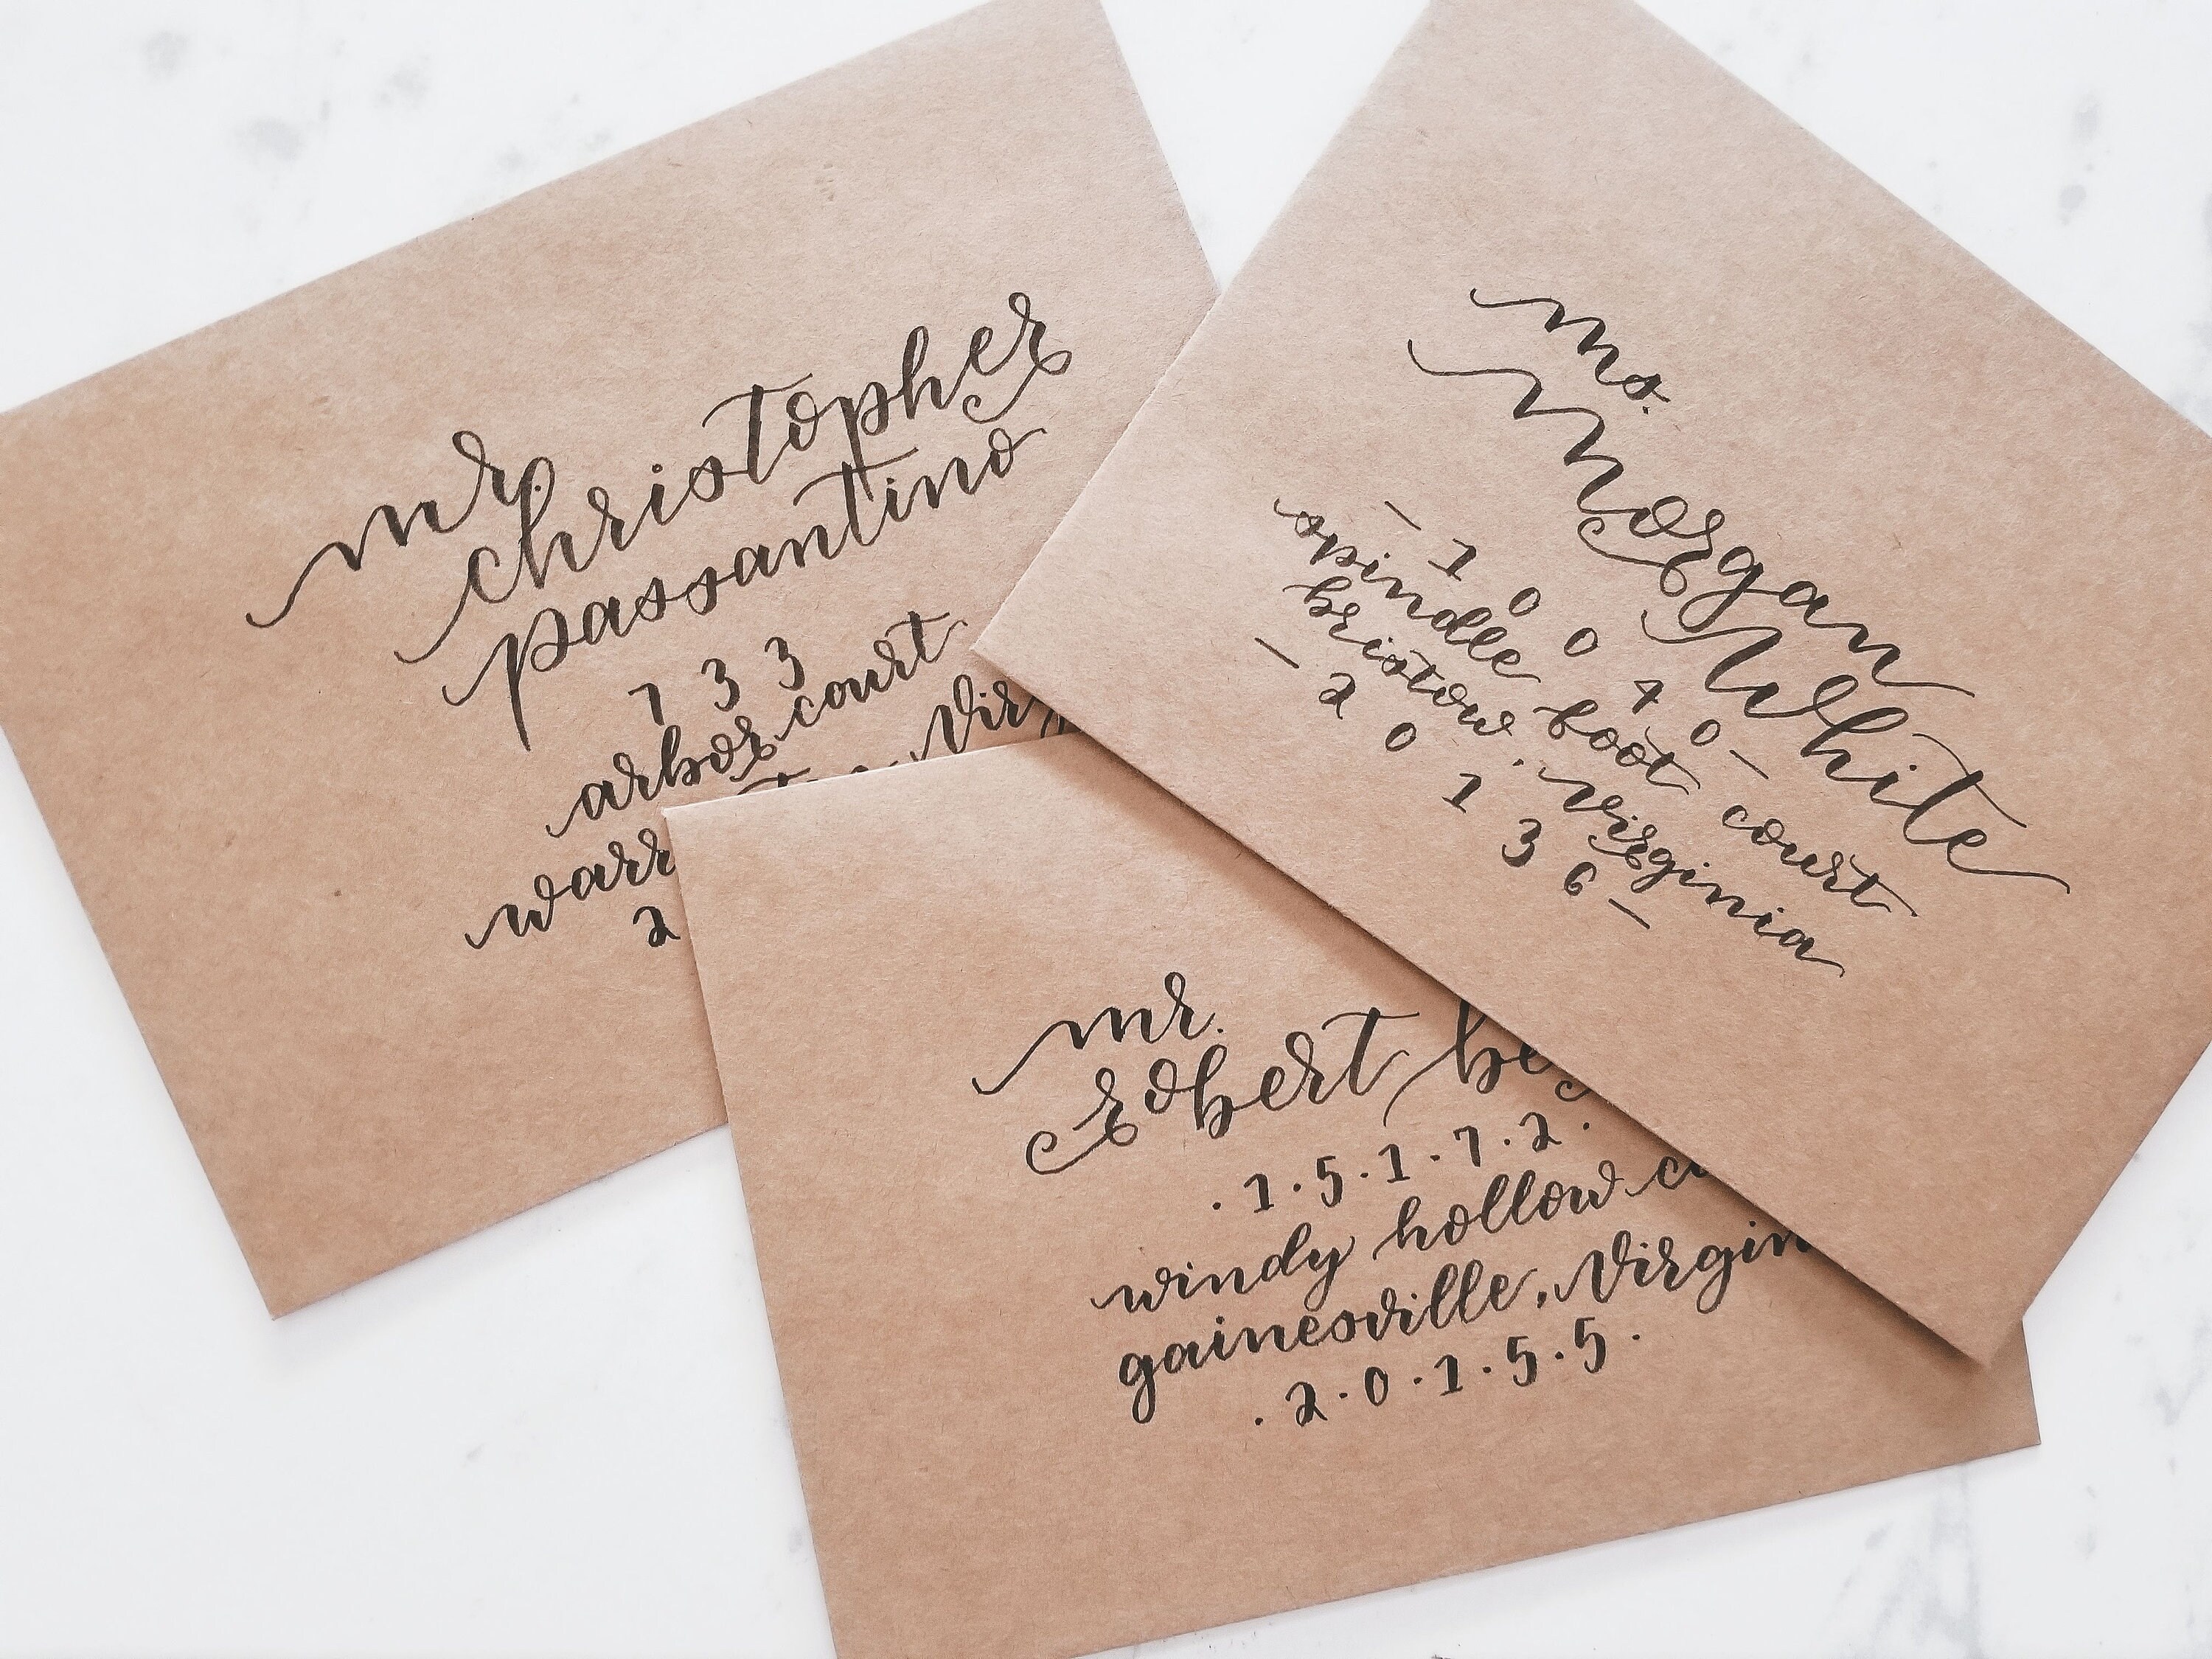 mr.
christopher
passantino
733
arbor court
warr
vir
2
ms.
Morgan
White
- 10040 -
spindle boot court
bristow, virginia
- 20136 -
mr.
robert be
.1.5.1.7.2.
windy hollow c
gainesville, Virgin
.2.0.1.5.5.